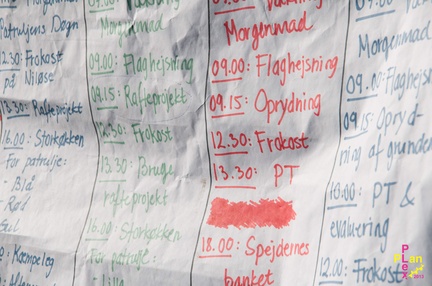 Patruljens Dagn
12.30: Frokost
på Niløse
13.30: Rafteprojekt
16.00: Storkøkken
For patrulje:
- Blå
- Rød
- Gul
Kæmpeleg
Morgenmad
09.00: Flaghejsning
09.15: Rafteprojekt
12.30: Frokost
13.30: Bruge
rafteprojekt
16.00: Storkøkken
For patrulje:
Morgenmad
09.00: Flaghejsning
09.15: Oprydning
12.30: Frokost
13.30: PT
18.00: Spejdernes
banket
Morgenmad
09.00: Flaghejs
09.15: Opryd-
ning af grunden
10.00: PT &
evaluering
12.00: Frokost
PLan